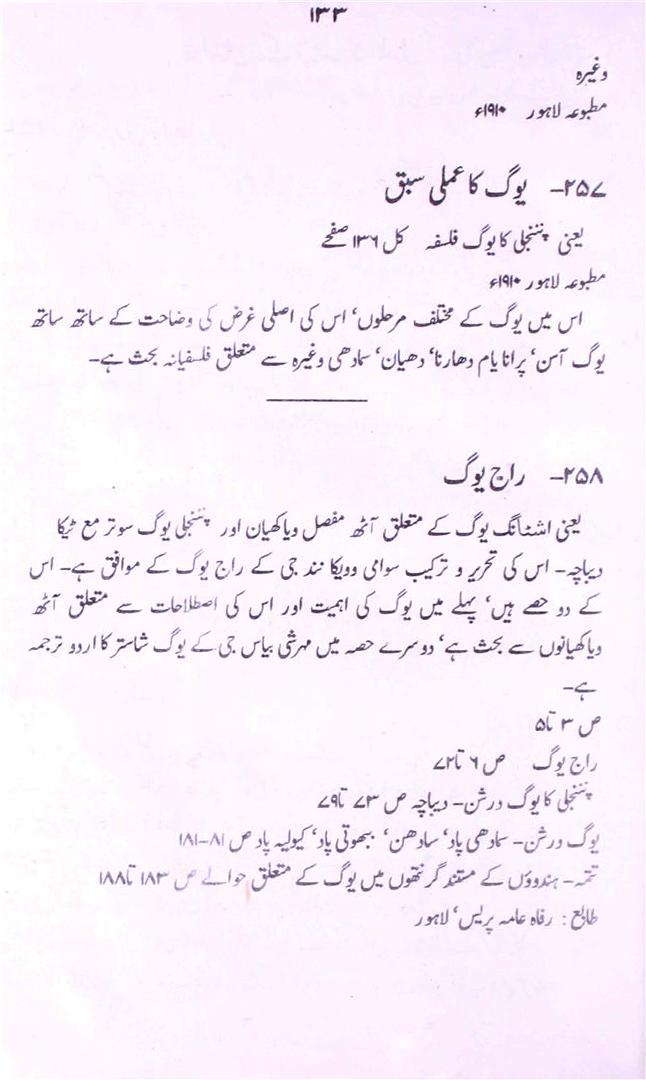 ۱۳۳
وغیرہ
مطبوعہ لاہور ۱۹۱۰ء
۲۵۷- یوگ کا عملی سبق
یعنی پتنجلی کا یوگ فلسفہ کل ۱۳۶ صفحے
مطبوعہ لاہور ۱۹۱۰ء
اس میں یوگ کے مختلف مرحلوں‘ اس کی اصلی غرض کی وضاحت کے ساتھ ساتھ
یوگ آسن‘ پرانایام دھارنا‘ دھیان‘ سمادھی وغیرہ سے متعلق فلسفیانہ بحث ہے۔
۲۵۸- راج یوگ
یعنی اشٹانگ یوگ کے متعلق آٹھ مفصل ویاکھیان اور پتنجلی یوگ سوتر مع ٹیکا
دیباچہ۔ اس کی تحریر و ترکیب سوامی وویکا نند جی کے راج یوگ کے موافق ہے۔ اس
کے دو حصے ہیں‘ پہلے میں یوگ کی اہمیت اور اس کی اصطلاحات سے متعلق آٹھ
ویاکھیانوں سے بحث ہے‘ دوسرے حصہ میں مہرشی بیاس جی کے یوگ شاستر کا اردو ترجمہ
ہے۔
ص ۳ تا ۵
راج یوگ ص ۶ تا ۷۲
پتنجلی کا یوگ درشن۔ دیباچہ ص ۷۳ تا ۷۹
یوگ درشن۔ سمادھی پاد‘ سادھن‘ ببھوتی پاد‘ کیولیہ پاد ص ۸۱-۱۸۱
تتمہ۔ ہندوؤں کے مستند گرنتھوں میں یوگ کے متعلق حوالے ص ۱۸۳ تا ۱۸۸
طابع : رفاہ عامہ پریس‘ لاہور